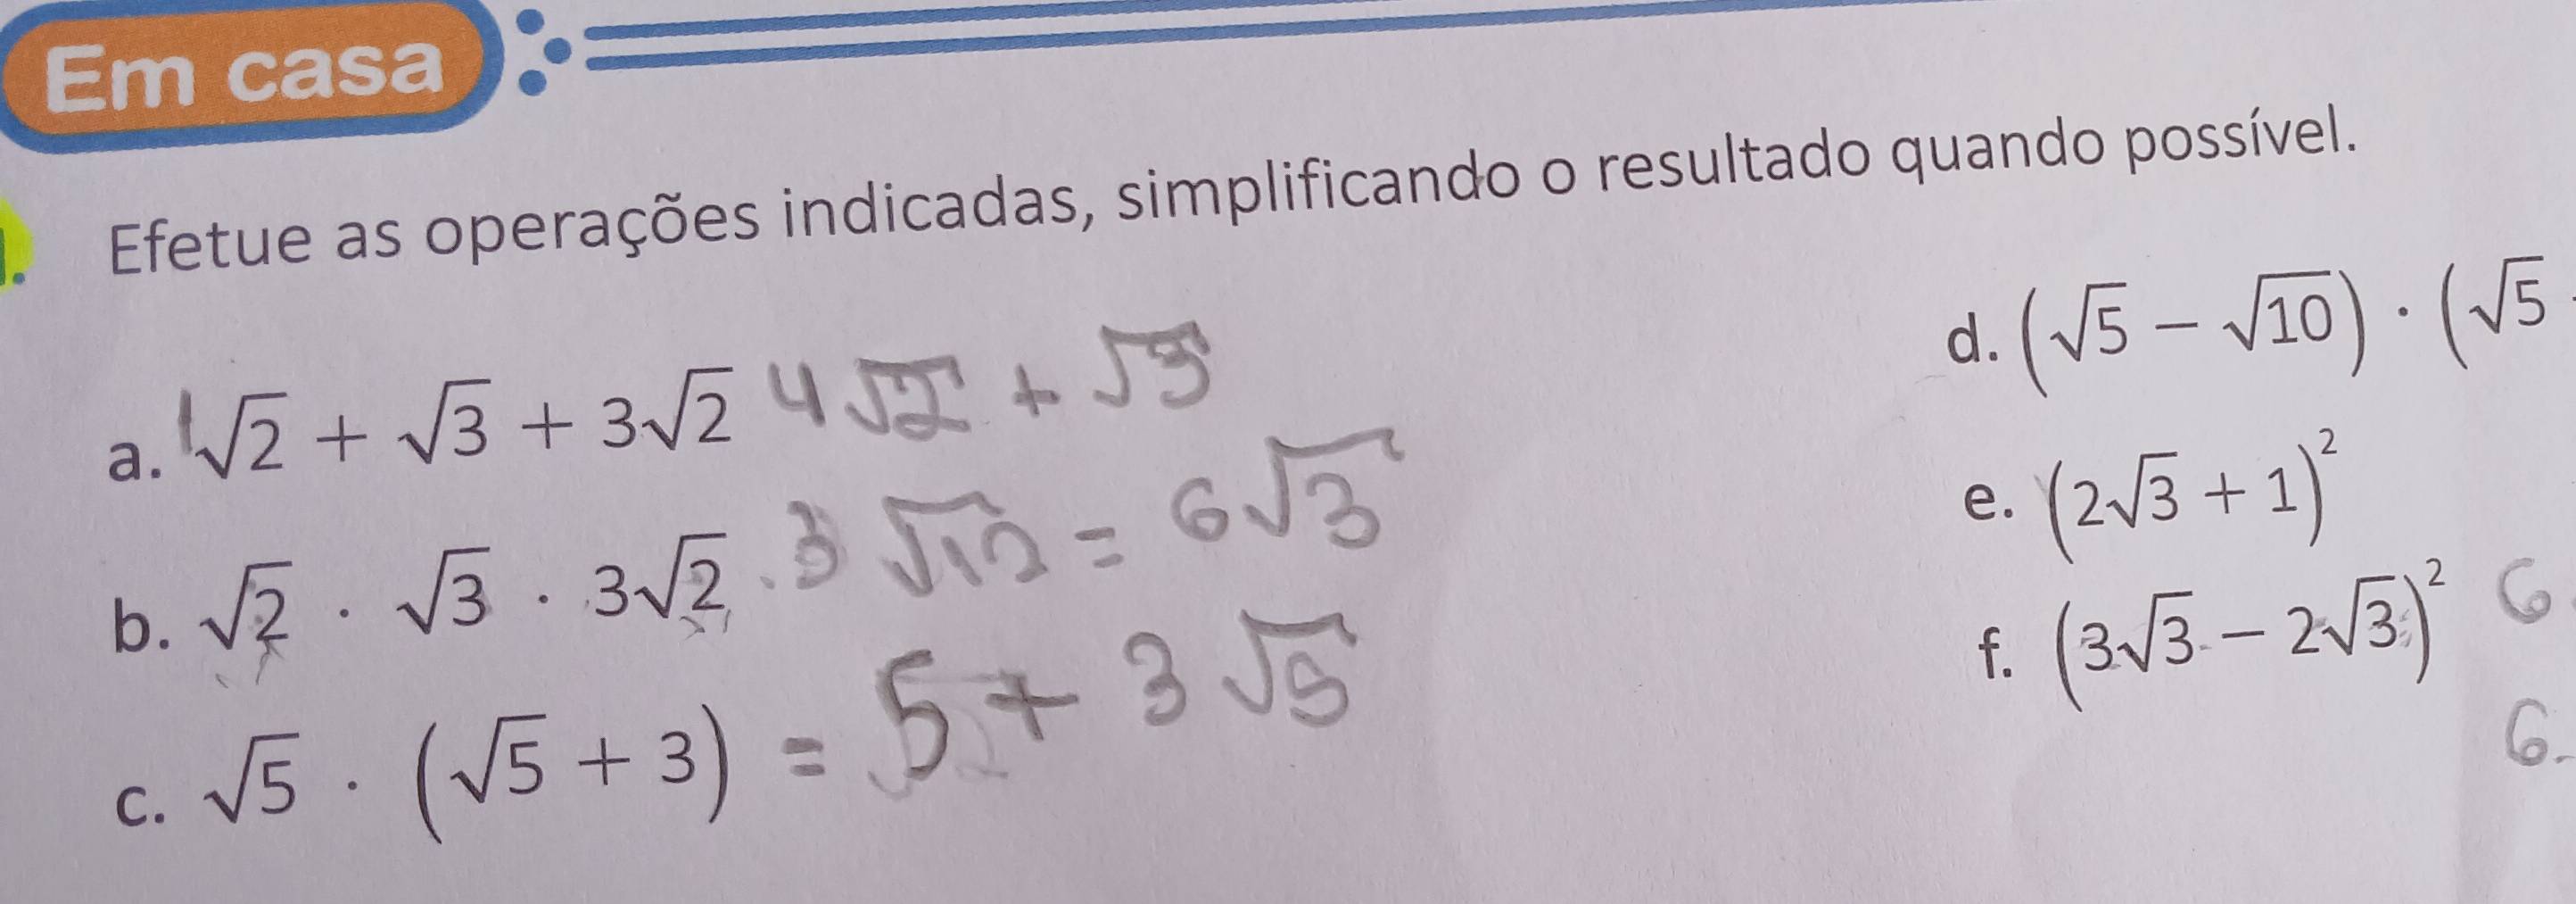 Em casa
Efetue as operações indicadas, simplificando o resultado quando possível.
a. 1√2 + √3 + 3√2 4√2 + √3
b. √2 · √3 · 3√2 . 3√12 = 6√3
c. √5 · (√5 + 3) = 5 + 3√5
d. (√5 − √10) · (√5
e. (2√3 + 1)²
f. (3√3 − 2√3)² 6
6.